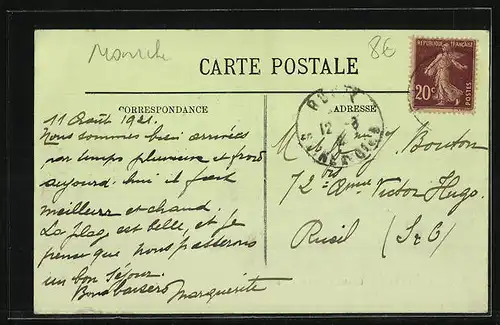 8€
CARTE POSTALE
REPUBLIQUE FRANÇAISE
20c
POSTES
CORRESPONDANCE
ADRESSE
11 Août 1921.
Nous sommes bien arrivées
par temps pluvieux et froid
aujourd'hui il fait
meilleur et chaud.
La plage est belle, et je
pense que nous passerons
un bon séjour.
Bons baisers Marguerite
M J. Bouton
72 bis Avenue Victor Hugo.
Rueil (S&O)
12 - 8
SEINE-ET-OISE